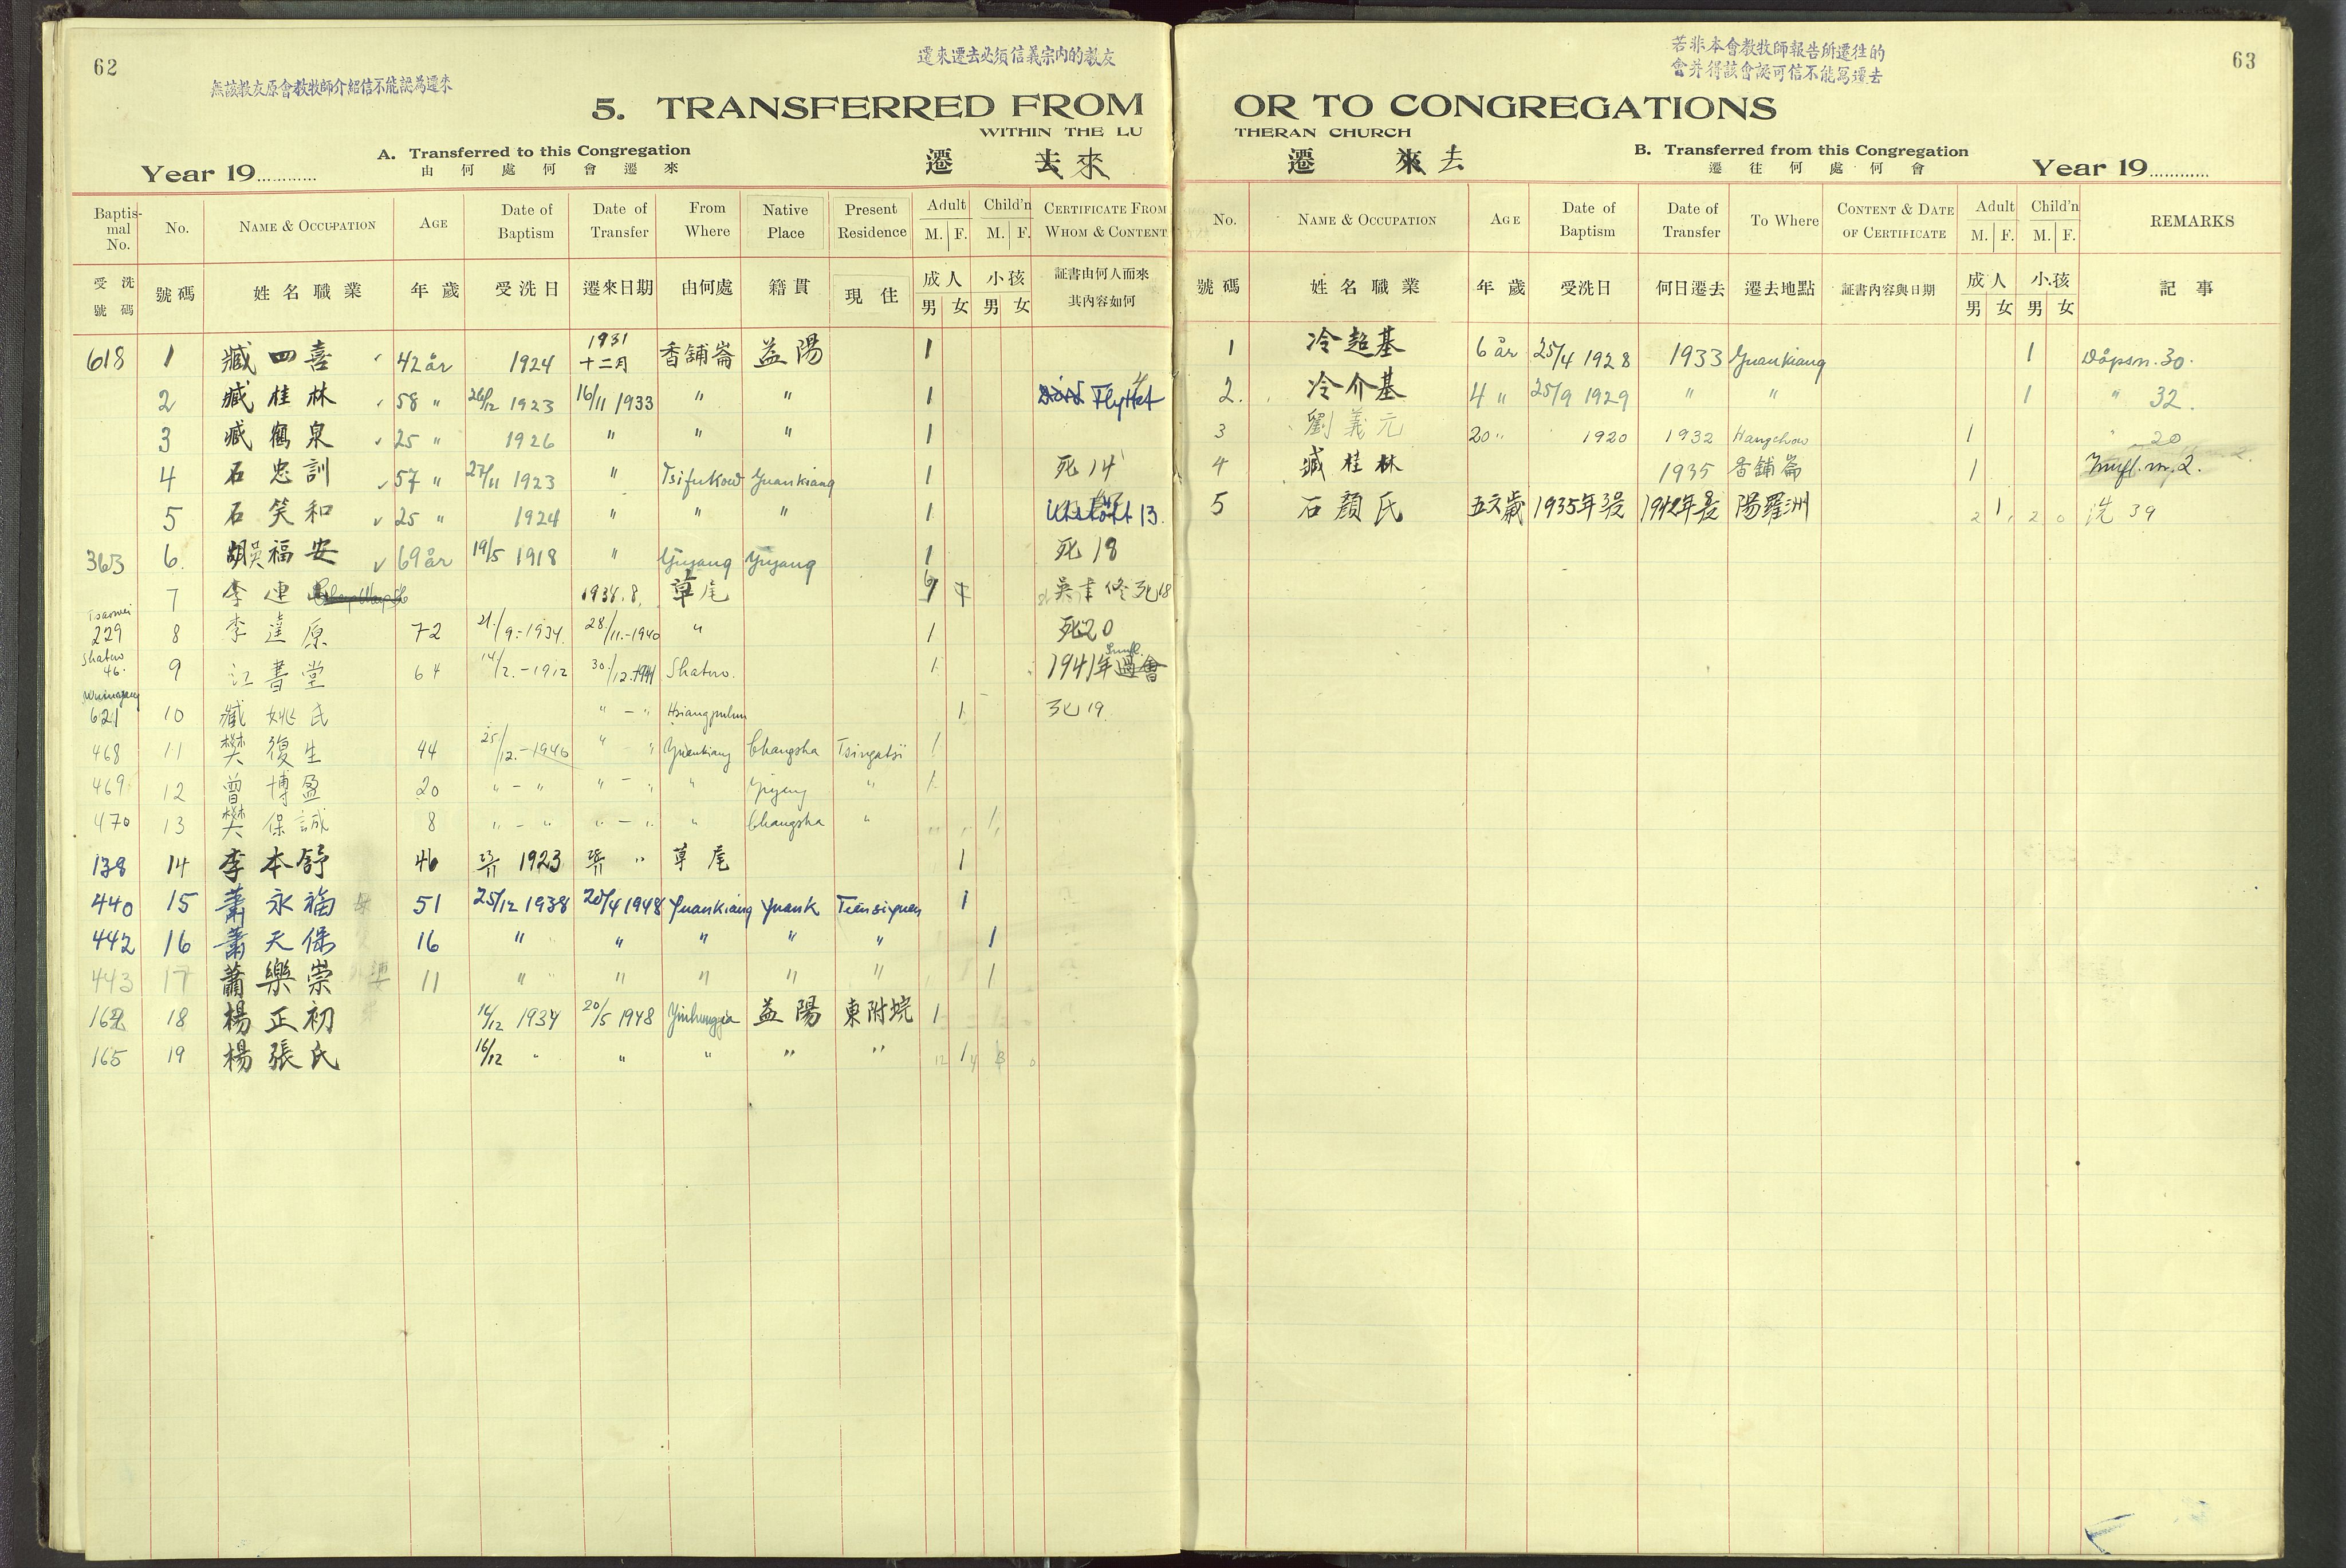 62
無該教友原會教牧師介紹信不能認為遷來
遷來遷去必須信義宗内的教友
5. TRANSFERRED FROM
WITHIN THE LU
A. Transferred to this Congregation
由何處何會遷來
Year 19............
遷 去來
Baptismal No. No. NAME & OCCUPATION AGE Date of Baptism Date of Transfer From Where Native Place Present Residence Adult M. F. Child'n M. F. CERTIFICATE FROM WHOM & CONTENT
受洗號碼 號碼 姓名職業 年歲 受洗日 遷來日期 由何處 籍貫 現住 成人 男 女 小孩 男 女 証書由何人而來其內容如何
618 1 臧四喜 42 år 1924 1931 十二月 香舖崙 益陽 1
2 臧桂林 58 " 26/12 1923 16/11 1933 " " 1 Flyttet 4
3 臧鶴泉 25 " 1926 " " " 1
4 石忠訓 57 " 27/11 1923 " Tsifukow Yuankiang 1 死 14
5 石笑和 25 " 1924 " " " 1 13.
363 6. 吳福安 69 år 19/5 1918 " Yiyang Yiyang 1 死 18
7 李連 1938.8. 草尾
Tsaowei 229 8 李達原 72 21./9.-1934. 28./11.-1940 " 1 死20
Shatwo 46. 9 江書堂 64 14/2.-1912 30./12.-1941 Shatwo. 1 1941年
621 10 臧姚氏 " - " Hsiangpulun 1 死 19
468 11 樊復生 44 25/12.-1940 " " Yuankiang Changsha Tsingatsï 1
469 12 曾博盈 20 " - " " - " " Yiyang " 1
470 13 樊保誠 8 " - " " - " " Changsha " 1
138 14 李本舒 46 1923 " 草尾 1
440 15 蕭永福 51 25/12 1938 20/4 1948 Yuankiang Yuank 1
442 16 蕭天保 16 " " " " " 1
443 17 蕭樂崇 11 " " " " " 1
162 18 楊正初 16/12 1934 20/5 1948 益陽 東附垸 1
165 19 楊張氏 16/12 " " " " " 12 1 4 3 0
63
若非本會教牧師報告所遷往的
會并得該會認可信不能寫遷去
OR TO CONGREGATIONS
THERAN CHURCH
遷 來去
B. Transferred from this Congregation
遷往何處何會
Year 19............
No. NAME & OCCUPATION AGE Date of Baptism Date of Transfer To Where CONTENT & DATE OF CERTIFICATE Adult M. F. Child'n M. F. REMARKS
號碼 姓名職業 年歲 受洗日 何日遷去 遷去地點 証書內容與日期 成人 男 女 小孩 男 女 記事
1 冷超基 6 år 25/4 1928 1933 Yuankiang 1 Dåpsn. 30.
2. 冷介基 4 " 25/9 1929 " " 1 " 32.
3 劉義元 20 " 1920 1932 Hangchow 1 " 20
4 臧桂林 1935 香舖崙 1 Innfl. nr. 2.
5 石顏氏 五六歲 1935年 陽羅洲 2 1 2 0 洗 39